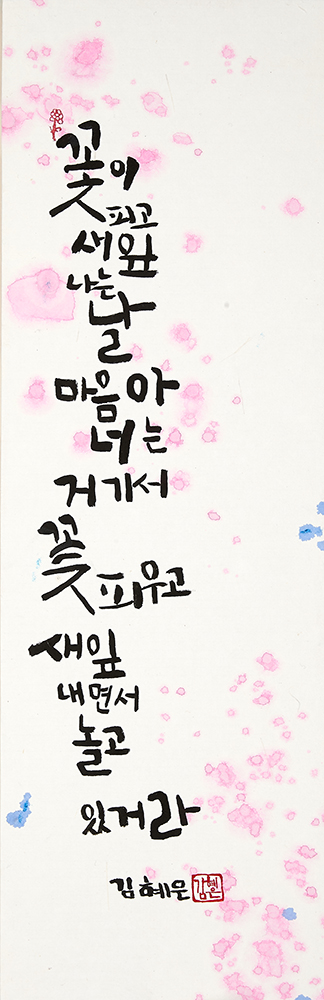 꽃이
피고
새잎
나는
날
마음아
너는
거기서
꽃
피우고
새잎
내면서
놀고
있거라
김혜운